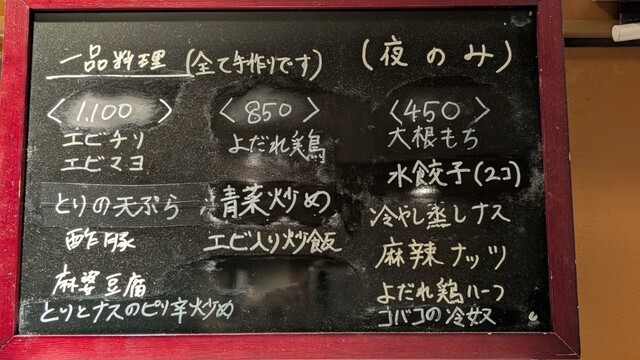 一品料理 (全て手作りです) (夜のみ)
<1.100>
エビチリ
エビマヨ
とりの天ぷら
酢豚
麻婆豆腐
とりとナスのピリ辛炒め
<850>
よだれ鶏
青菜炒め
エビ入り炒飯
<450>
大根もち
水餃子(2コ)
冷やし蒸しナス
麻辣ナッツ
よだれ鶏ハーフ
コバコの冷奴